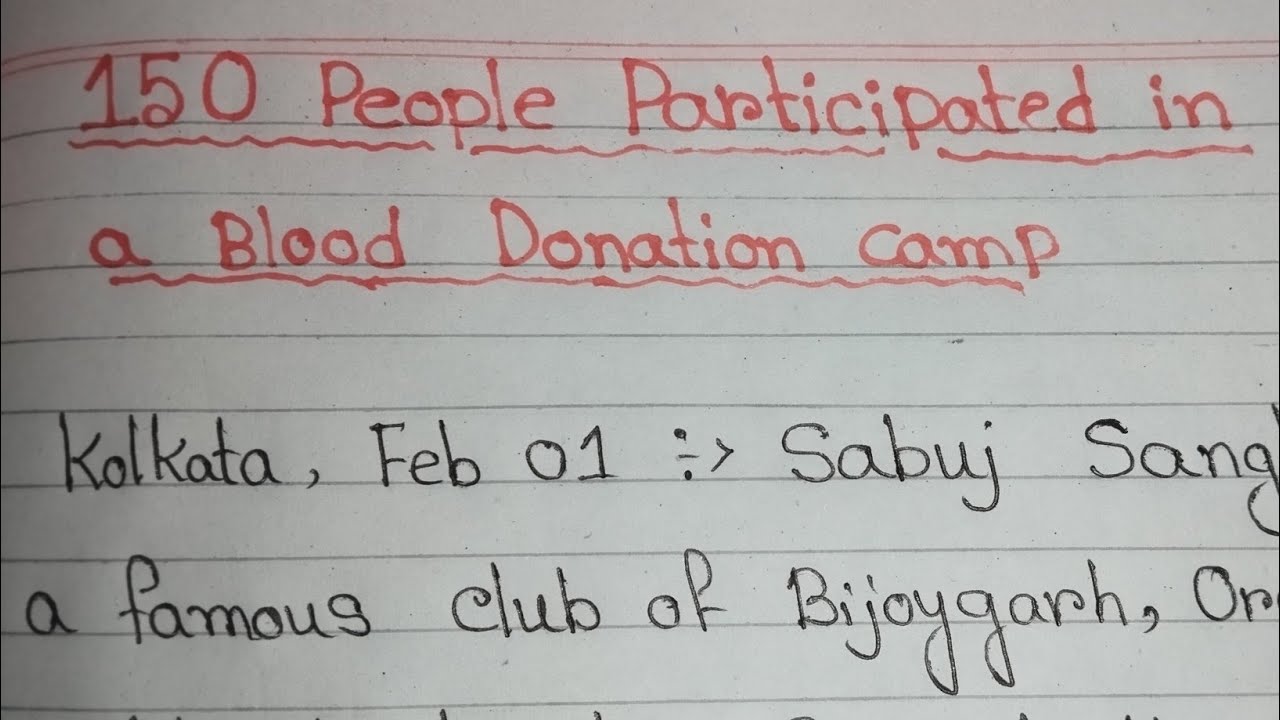 150 People Participated in
a Blood Donation camp
Kolkata, Feb 01 :-> Sabuj
a famous club of Bijoygarh,